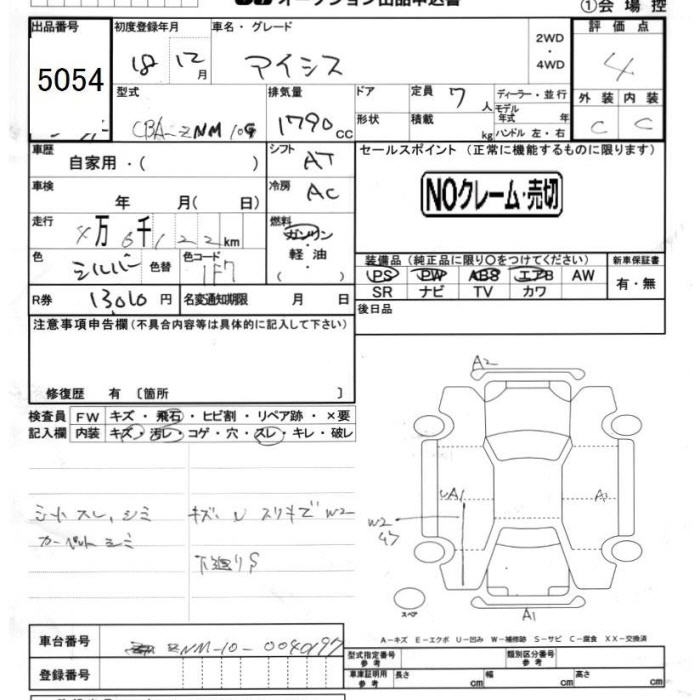 オークション出品申込書 ①会場控
出品番号 初度登録年月 車名・グレード 2WD ・ 4WD 評価点
5054 18 12月 アイシス 4
型式 排気量 ドア 定員 7人 ディーラー・並行 外装 内装
CBA-ZNM10G 1790cc 形状 積載 kg モデル年式 年 ハンドル 左・右 C C
車歴 自家用・( ) シフト AT セールスポイント (正常に機能するものに限ります)
車検 年 月( 日) 冷房 AC NOクレーム・売切
走行 4万6千122km 燃料 ガソリン・軽油・( )
色 シルバー 色替 色コード 1F7
装備品 (純正品に限り○をつけてください) 新車保証書
PS PW ABS エアB AW 有・無
SR ナビ TV カワ
R券 13010円 名変通知期限 月 日 後日品
注意事項申告欄(不具合内容等は具体的に記入して下さい)
修復歴 有 〔箇所 〕
検査員 FW キズ・飛石・ヒビ割・リペア跡・×要
記入欄 内装 キズ・汚レ・コゲ・穴・スレ・キレ・破レ
シートスレ、シミ キズ、U スリキズ W2
カーペットシミ 下廻りS
A2
UA1 A1
W2
スペア A1
A-キズ E-エクボ U-凹み W-補修跡 S-サビ C-腐食 XX-交換済
車台番号 ZNM-10-0040197
登録番号
型式指定番号 参考 類別区分番号 参考
車庫証明用 参考 長さ cm 幅 cm 高さ cm